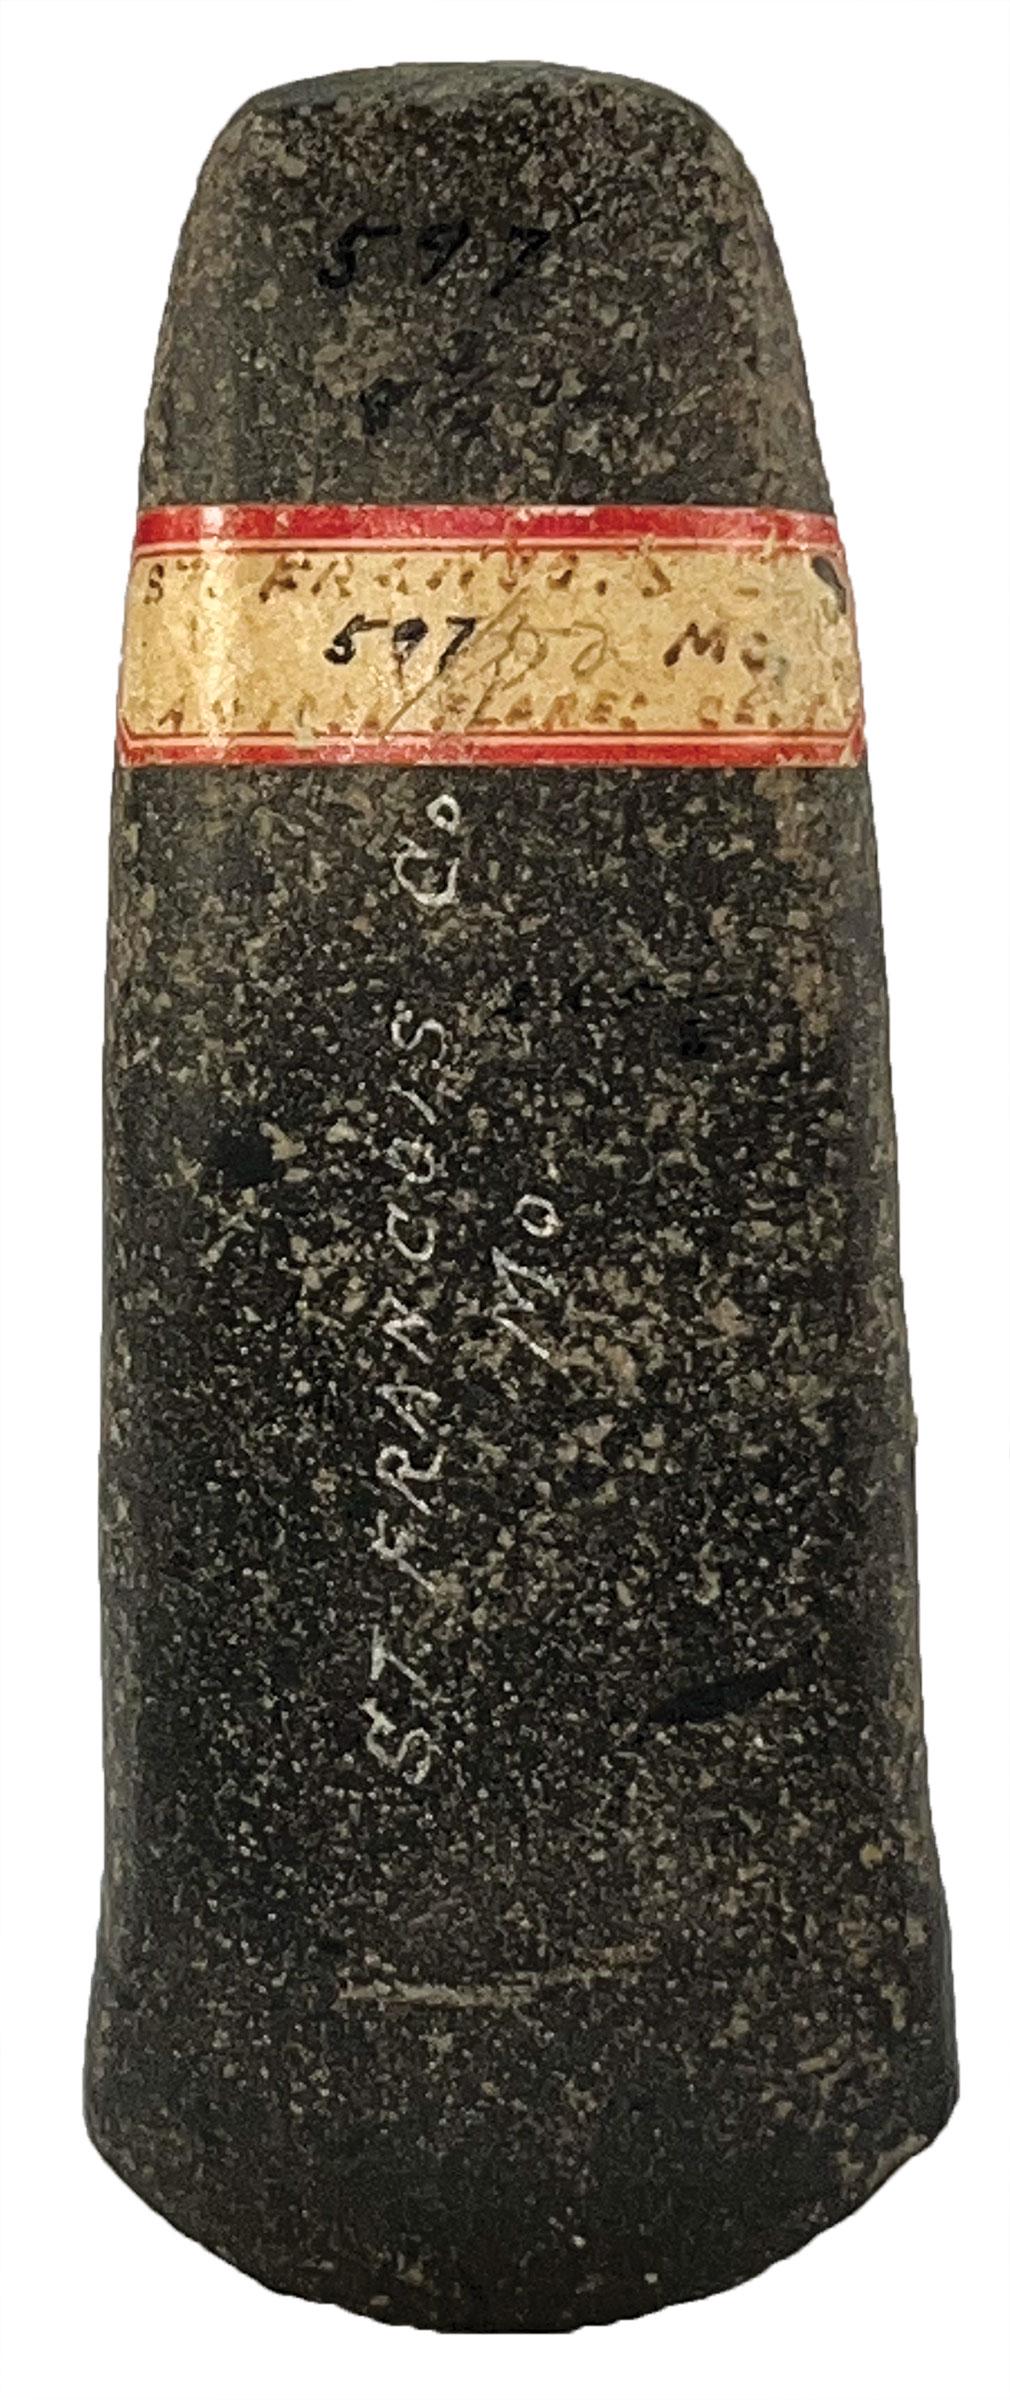 597
ST. FRANCOIS
597 Mo.
FLARED CELT
ST FRANCOIS Co
MO